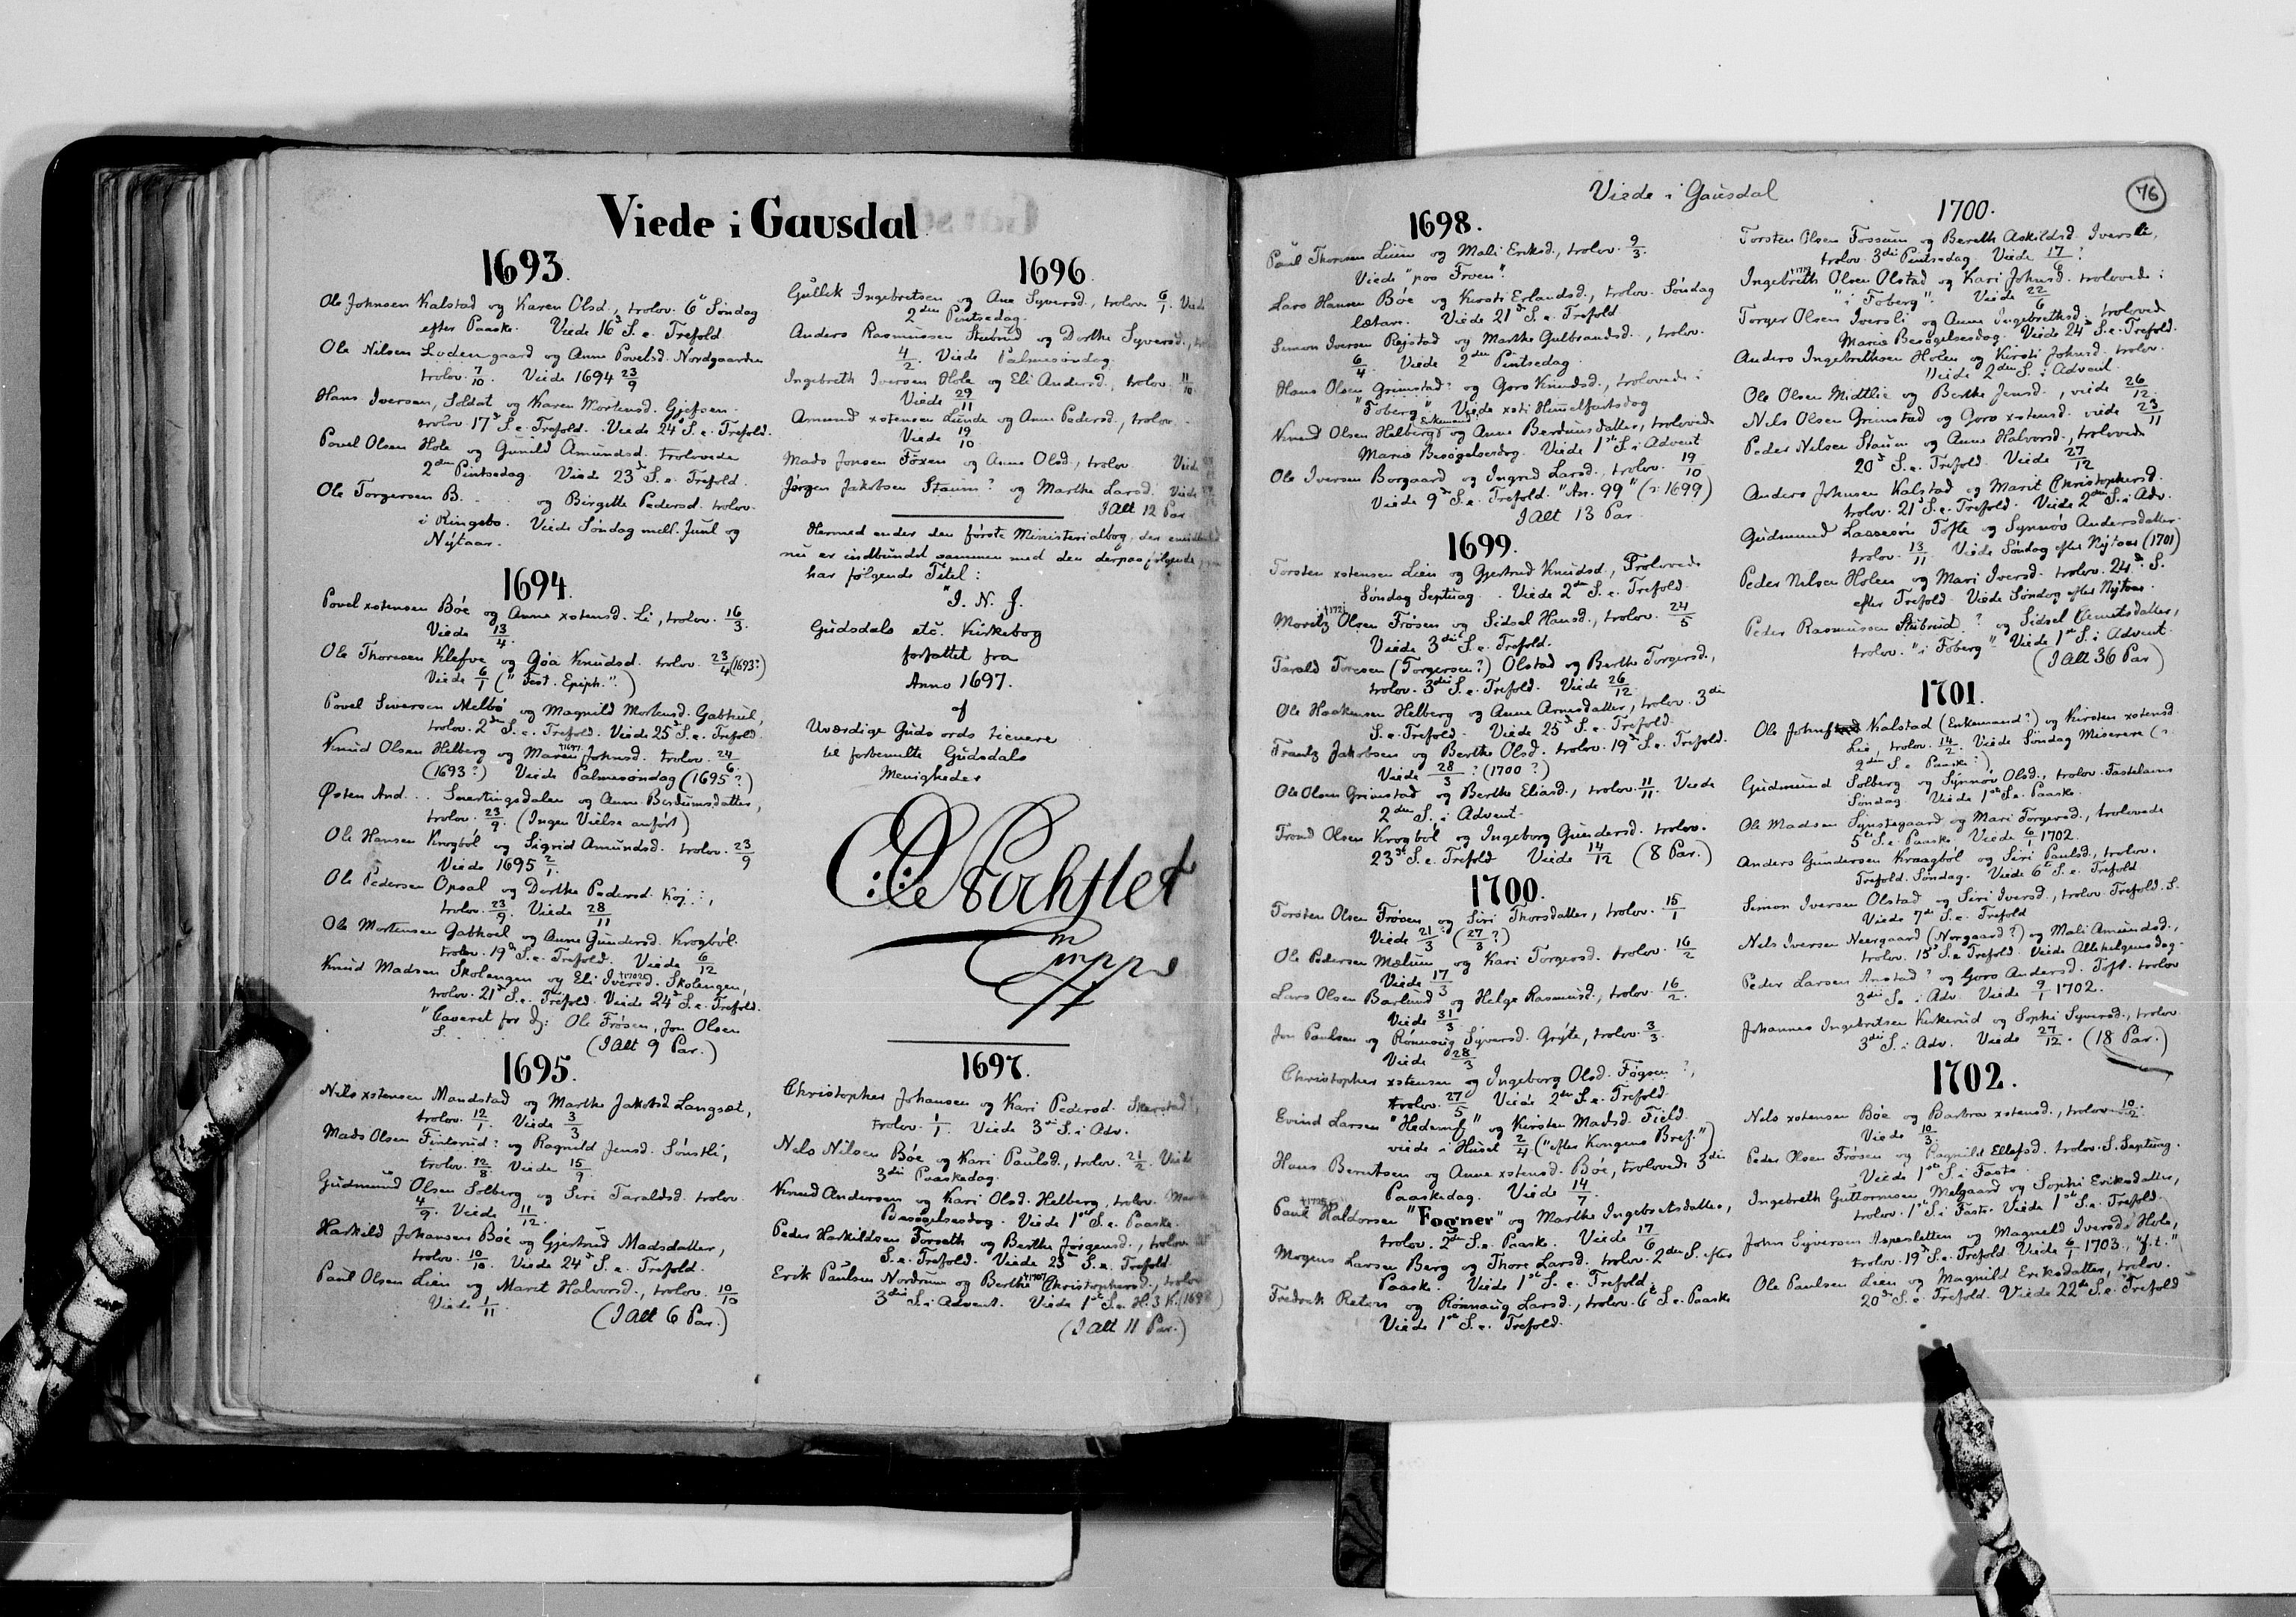 Viede i Gausdal
1693.
Ole Johnsen Kalstad og Karen Olsd., trolov. 6te Søndag
efter Paaske. Viede 16de S. e. Trefold.
Ole Nilsen Lodengaard og Anne Povelsd. Nordgaarden
trolov. 7/10. Viede 1694 23/9
Hans Iversen, Soldat og Karen Mortensd. Gjefsen.
trolov. 17de S. e. Trefold. Viede 24de S. e. Trefold.
Povel Olsen Hole og Gunild Amundsd. trolovede
2den Pintsedag. Viede 23de S. e. Trefold.
Ole Torgersen B. . . og Birgitte Pedersd. trolov.
i Ringebo. Viede Søndag mell. Juul og
Nytaar.
1694
Povel xstensen Bøe og Anne xstensd. Li, trolov. 16/3.
Viede 13/4.
Ole Thoresen Klefve og Göa Knudsd. trolov. 23/4 (1693?)
Viede 6/1 ("Fest. Epiph.":)
Povel Siversen Melbö og Magnild Mortensd. Gabhuul,
trolov. 2den S. e. Trefold. Viede 25de S. e. Trefold.
Knud Olsen Helberg og Maren †1697 Johnsd. trolov. 24/6.
(1693?) Viede Palmesöndag (1695?)
Østen And... Svartingsdalen og Anne Berdunsdatter,
trolov. 23/9. (Ingen Vielse anført)
Ole Hansen Krogböl og Sigrid Amundsd. trolov. 23/9
Viede 1695 2/1.
Ole Pedersen Opsal og Dorthe Pedersd. Koj..,
trolov. 23/9. Viede 28/11
Ole Mortensen Gabhoel og Anne Gundersd. Krogböl.
trolov. 19de S. e. Trefold. Viede 6/12
Knud Madsen Skolengen og Eli †1702 Iversd. Skolengen,
trolov. 21de S. e. Trefold. Viede 24de S. e. Trefold.
"Caveret for dj: Ole Frösen, Jon Olsen
S. . . . .
(I Alt 9 Par.)
1695.
Nils xstensen Mandstad og Marthe Jakobsd Langsæt,
trolov. 12/1. Viede 3/3
Mads Olsen Finbrud? og Ragnild Jensd. Sönstli,
trolov. 12/8 Viede 15/9.
Gudmund Olsen Solberg og Siri Taraldsd. trolov.
4/9. Viede 11/12.
Harkild Johansen Bøe og Gjertrud Madsdatter,
trolov. 10/10. Viede 24de S. e. Trefold.
Paul Olsen Lien og Marit Halvorsd., trolov. 10/10
Viede 1/11. (I Alt 6 Par.)
1696
Gullik Ingebretsen og Ane Syversd., trolov 6/1. Viede
2den Pintsedag.
Anders Rasmussen Stubrud og Dorthe Syversd.,
4/2. Viede Palmesøndag
Ingebreth Iversen Hole og Eli Andersd., trolov. 11/10
Viede 29/11
Amund xstensen Lunde og Anne Pedersd., trolov.
Viede 19/10.
Mads Jonsen Foxen og Anne Olsd, trolov Viede
Jørgen Jakobsen Staum? og Marthe Larsd. Viede
I Alt 12 Par
Hermed ender den første Ministerialbog, der
nu er indbundet sammen med den derpaa følgende,
har følgende Titel:
"I. N. J.
Gudsdals etc. Kirkebog
forfattet fra
Anno 1697.
af
Uværdige Guds ords tienere
til forbemelte Gudsdals
Menigheder
mppr
1697.
Christopher Johansen og Kari Pedersd. Skarstad,
trolov. 1/1. Viede 3die S. i Adv.
Nels Nilsen Bøe og Kari Paulsd., trolov. 21/2. Viede
3die Paaskedag.
Knud Andersen og Kari Olsd. Helberg, trolov. Mariæ
Besøgelsesdag. Viede 1ste S. e. Paaske.
Peder Harkildsen Forseth og Berthe Jørgensd., trolov.
S. e. Trefold. Viede 23de S. e. Trefold.
Erik Paulsen Nordrum og Berthe †1707 Christophersd., trolov
3die S. i Advent. Viede 1ste S. e. H. 3 K. (1698)
(I Alt 11 Par.)
Viede i Gausdal
76
1698.
Paul Thoresen Lium og Mali Eriksd., trolov. 9/3.
Viede "paa Froen".
Lars Hansen Bøe og Kirsti Erlandsd., trolov. Søndag
lætare. Viede 21de S. e. Trefold
Simon Iversen Rejstad og Marthe Gulbrandsd., trolov.
6/4. Viede 2den Pintsedag.
Hans Olsen Grimstad? og Goro Knudsd., trolovede i
"Foberg". Viede xsti Himmelfartsdag
Knud Olsen Helberg Enkemand og Anne Berdunsdatter, trolovede
Mariæ Besøgelsesdag. Viede 1ste S. i Advent
Ole Iversen Borgaard og Ingred Larsd., trolov. 19/10
Viede 9de S. e. Trefold. "An. 99" (ɔ: 1699)
I Alt 13 Par.
1699.
Torsten xstensen Lien og Gjertrud Knudsd., Trolovede
Søndag Septuag. Viede 2den S. e. Trefold
Moritz †1721 Olsen Frösen og Sidsel Hansd., trolov. 24/5
Viede 3die S. e. Trefold.
Tarald Toresen (Torgersen?) Olstad og Berthe Torgersd.,
trolov. 3die S. e. Trefold. Viede 26/12.
Ole Haakensen Helberg og Anne Arnesdatter, trolov. 3die
S. e. Trefold. Viede 25de S. e. Trefold.
Frantz Jakobsen og Berthe Olsd. trolov. 19de S. e. Trefold.
Viede 28/3? (1700?)
Ole Olsen Grimstad og Berthe Eliasd., trolov. 11/11. Viede
2den S. i Advent.
Trond Olsen Krogböl og Ingeborg Gundersd. trolov.
23de S. e. Trefold Viede 14/12 (8 Par.)
1700.
Torsten Olsen Frösen og Siri Thorsdatter, trolov. 15/1
Viede 21/3? (27/3?)
Ole Pedersen Mælum og Kari Torgersd. trolov. 16/2
Viede 17/3
Lars Olsen Barlund og Helge Rasmusd., trolov. 16/2.
Viede 31/3
Jon Paulsen og Rönnaug Syversd. Gryte, trolov. 3/3.
Viede 28/3
Christopher xstensen og Ingeborg Olsd. Fögsen?,
trolov. 27/5 Viede 2den S. e. Trefold.
Evind Larsen "Hedemf" og Kirsten Madsd. Field
viede i Huset 2/4 ("efter Kongens Bref.")
Hans Berntsen og Anne xstensd. Bøe, trolovede 3die
Paaskedag. Viede 14/7.
Paul †1725 Haldorsen "Fogner" og Marthe Ingebretsdatter,
trolov. 2den S. e. Paaske. Viede 17/6
Mogens Larsen Berg og Thore Larsd. trolov. 2den S. efter
Paaske. Viede 1ste S. e. Trefold.
Fredrik Reters og Rönnaug Larsd., trolov. 6te S. e. Paaske
Viede 1ste S. e. Trefold.
1700.
Torsten Olsen Fossum og Bereth Askildsd. Iversli,
trolov. 3die Pintsedag. Viede 17/6?
Ingebreth †1772 Olsen Olstad og Kari Johnsd. trolovede i
"i Foberg". Viede 22/6
Torger Olsen Iversli og Anne Ingebrethsd. trolovede
Mariæ Besøgelsesdag. Viede 24de S. e. Trefold.
Anders Ingebrethsen Holen og Kirsti Johnsd. trolov.
Viede 2den S. i Advent.
Ole Olsen Midtlie og Berthe Jensd., viede 26/12.
Nels Olsen Grimstad og Goro xstensd. viede 23/11
Peder Nilsen Staum og Anne Halvorsd., trolovede
20de S. e. Trefold. Viede 27/12
Anders Johnsen Kalstad og Marit Christophersd.
trolov. 21de S. e. Trefold. Viede 2den S. i Adv.
Gudmund Lassesøn Tofte og Synnøv Andersdatter
trolov. 13/11 Viede Søndag efter Nytaar (1701)
Peder Nilsen Holen og Mari Iversd. trolov. 24de S.
efter Trefold. Viede Søndag efter Nytaar.
Peder Rasmussen Stubrud? og Sidsel Clemitsdatter,
trolov. "i Foberg". Viede 1ste S. i Advent.
(I Alt 36 Par)
1701.
Ole Johnsen Kalstad (Enkemand?) og Kirsten xstensd.
Lie, trolov. 14/2. Viede Søndag Miserere (ɔ:
2den S. e. Paaske?)
Gudmund Solberg og Synnøv Olsd., trolov. Fastelavns
Søndag. Viede 1ste S. e. Paaske.
Ole Madsen Synstegaard og Mari Torgersd., trolovede
5te S. e. Paaske. Viede 6/1 1702.
Anders Gundersen Kraagböl og Siri Paulsd., trolov.
Trefold. Søndag. Viede 6te S. e. Trefold
Simon Iversen Olstad og Siri Iversd., trolov. Trefold. S.
Viede 7de S. e. Trefold
Nels Iversen Neergaard (Norgaard?) og Mali Amundsd.,
trolov. 15de S. e. Trefold. Viede Allehelgensdag.
Peder Larsen Anstad? og Goro Andersd. Toft. trolov
3die S. i Adv. Viede 9/1 1702.
Johannes Ingebretsen Kirkerud og Sophi Syversd., trolov.
3die S. i Adv. Viede 27/12. (18 Par.)
1702.
Nels xstensen Bøe og Barbra xstensd., trolov. 10/2.
Viede 10/3.
Peder Olsen Frösen og Ragnild Ellefsd. trolov. S. Septuag.
Viede 1ste S. i Faste.
Ingebreth Guttormsen Melgaard og Sophi Eriksdatter,
trolov. 1ste S. i Faste. Viede 1ste S. e. Trefold.
John Syversen Aspesletten og Magnild Iversd. Hole,
trolov. 19de S. e. Trefold. Viede 6/1 1703, "f. t."
Ole Paulsen Lien og Magnild Eriksdatter, trolov.
20de S. e. Trefold. Viede 22de S. e. Trefold